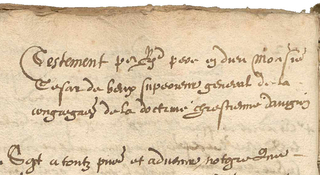 Testement per Rd pere en dieu monsr
Cesar de beux superieur general de la
congrega(on) de la doctrine chrestienne davignon
Soyt a toutz pntz et advenir notoyre que